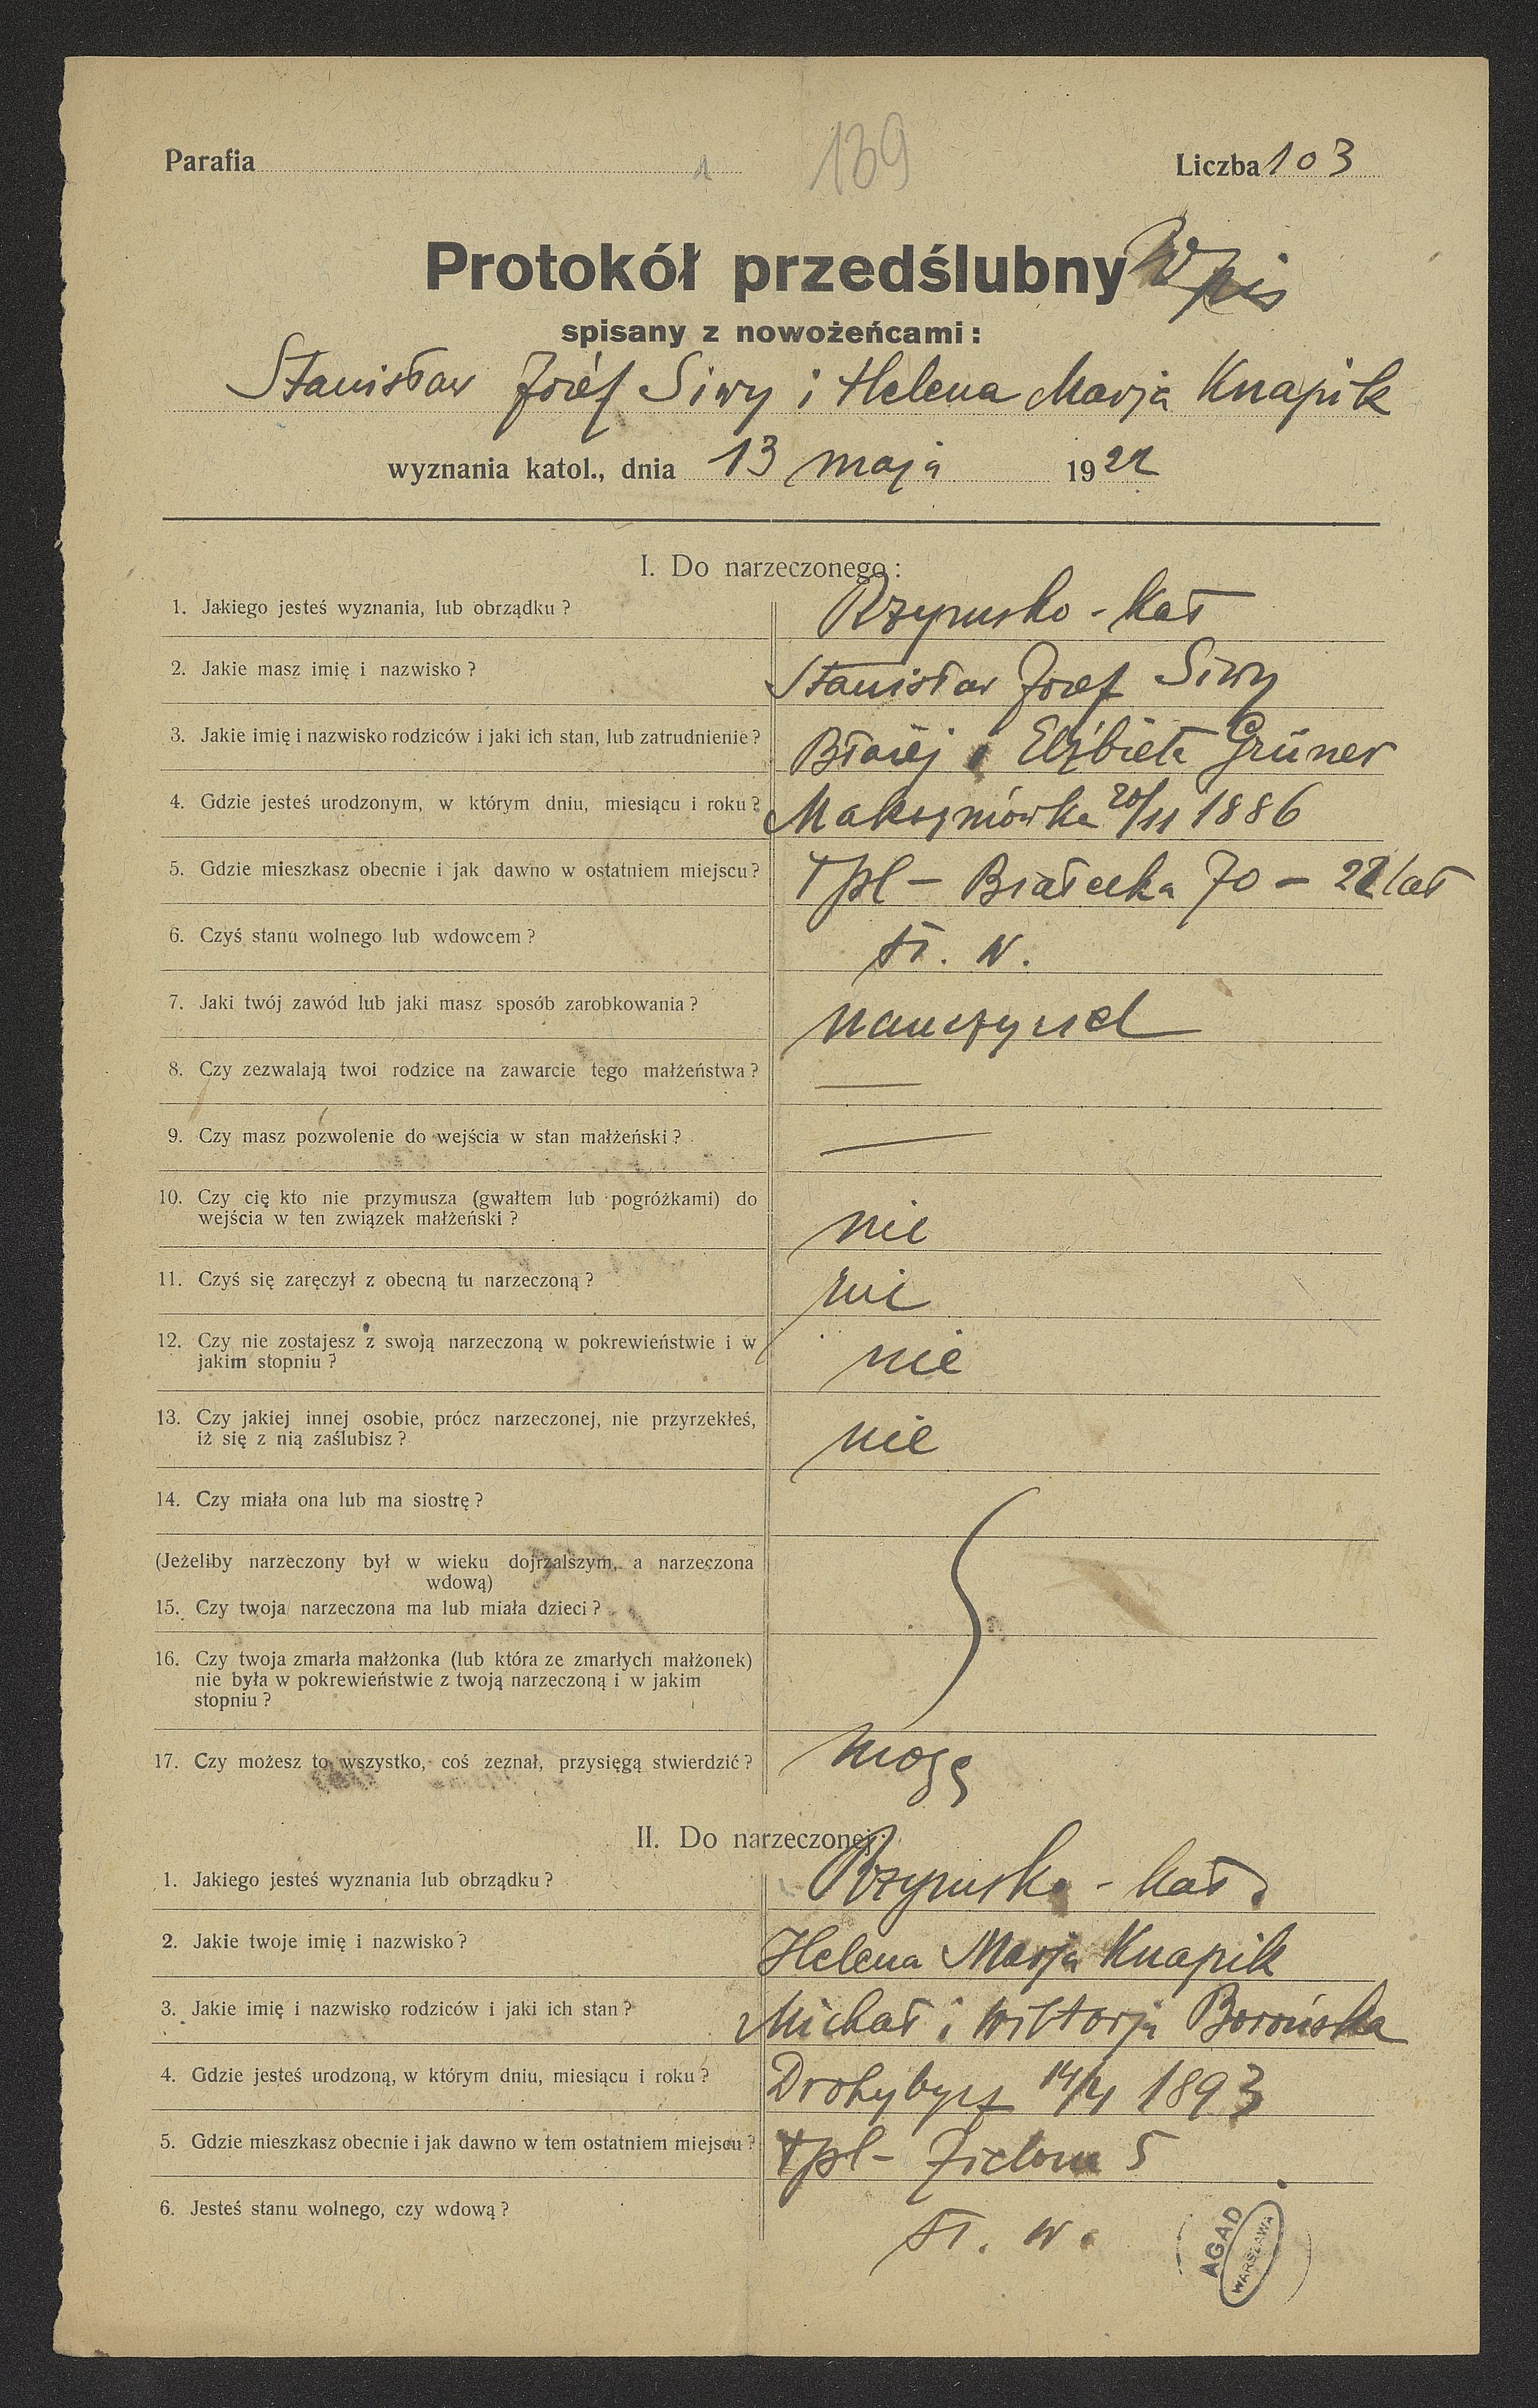 Parafia 139 Liczba 103
Protokół przedślubny Wpis
spisany z nowożeńcami:
Stanisław Józef Siwy i Helena Marja Knapik
wyznania katol., dnia 13 maja 1922
I. Do narzeczonego:
1. Jakiego jesteś wyznania, lub obrządku? Rzymsko - kat
2. Jakie masz imię i nazwisko? Stanisław Józef Siwy
3. Jakie imię i nazwisko rodziców i jaki ich stan, lub zatrudnienie? Błażej i Elżbieta Grüner
4. Gdzie jesteś urodzonym, w którym dniu, miesiącu i roku? Maksymówka 20/11 1886
5. Gdzie mieszkasz obecnie i jak dawno w ostatniem miejscu? Tpl - Białecka 70 - lat
6. Czyś stanu wolnego lub wdowcem? st. w.
7. Jaki twój zawód lub jaki masz sposób zarobkowania? nauczyciel
8. Czy zezwalają twoi rodzice na zawarcie tego małżeństwa? —
9. Czy masz pozwolenie do wejścia w stan małżeński? —
10. Czy cię kto nie przymusza (gwałtem lub pogróżkami) do
wejścia w ten związek małżeński? nie
11. Czyś się zaręczył z obecną tu narzeczoną? nie
12. Czy nie zostajesz z swoją narzeczoną w pokrewieństwie i w
jakim stopniu? nie
13. Czy jakiej innej osobie, prócz narzeczonej, nie przyrzekłeś,
iż się z nią zaślubisz? nie
14. Czy miała ona lub ma siostrę?
(Jeżeliby narzeczony był w wieku dojrzalszym, a narzeczona
wdową)
15. Czy twoja narzeczona ma lub miała dzieci?
16. Czy twoja zmarła małżonka (lub która ze zmarłych małżonek)
nie była w pokrewieństwie z twoją narzeczoną i w jakim
stopniu?
17. Czy możesz to wszystko, coś zeznał, przysięgą stwierdzić? mogę
II. Do narzeczonej:
1. Jakiego jesteś wyznania lub obrządku? Rzymsko - kat.
2. Jakie twoje imię i nazwisko? Helena Marja Knapik
3. Jakie imię i nazwisko rodziców i jaki ich stan? Michał i Wiktorja Borońska
4. Gdzie jesteś urodzoną, w którym dniu, miesiącu i roku? Drohybycz 14/4 1893
5. Gdzie mieszkasz obecnie i jak dawno w tem ostatniem miejscu? Tpl - Zielona 5
6. Jesteś stanu wolnego, czy wdową? st. w.
AGAD
WARSZAWA